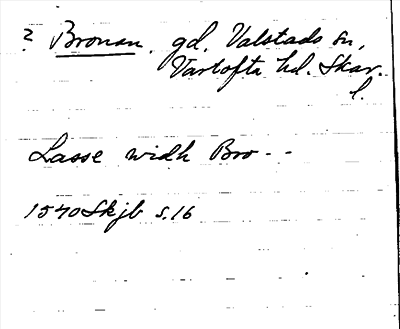 ? Bronan. gd. Valstads sn,
Vartofta hd. Skar.
l.
Lasse widh Bro--
1540 Skjb s.16